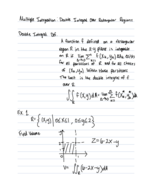 Multiple Integration Double Integrals Over Rectangular Regions
Double Integral Def.
A function f defined on a rectangular
region R in the x-y plane is integrable
on R if lim Σ f(xk, yk) ΔAk exists
for all partitions of R and for all choices
of (xk, yk) within those partitions.
The limit is the double integral of f
over R
∬ f(x,y) dA = lim Σ f(xk, yk) ΔAk
Ex 1
R = {(x,y) | 0≤x≤1, 0≤y≤2}
Find Volume
Z = 6-2x-y
V = ∬ (6-2x-y) dA